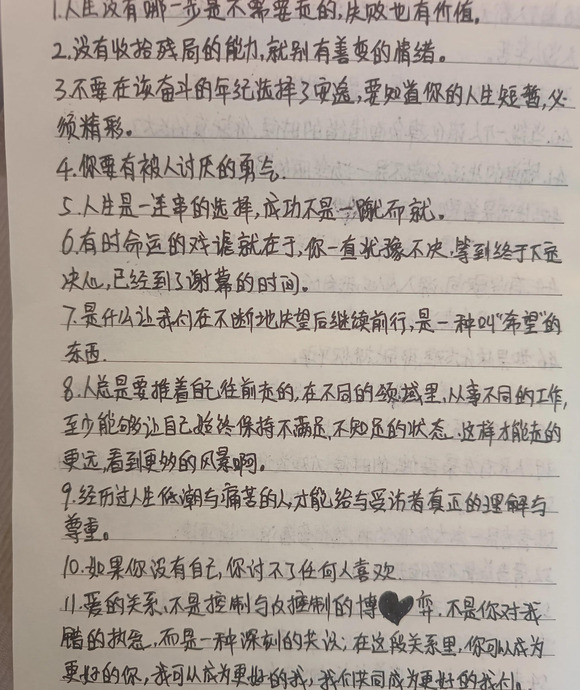 1.人生没有哪一步是不需要走的,失败也有价值。
2.没有收拾残局的能力,就别有善变的情绪。
3.不要在该奋斗的年纪选择了安逸,要知道你的人生短暂,必
须精彩。
4.你要有被人讨厌的勇气.
5.人生是一连串的选择,成功不是一蹴而就。
6.有时命运的戏谑就在于,你一直犹豫不决,等到终于下定
决心,已经到了谢幕的时间。
7.是什么让我们在不断地失望后继续前行,是一种叫“希望”的
东西.
8.人总是要推着自己往前走的,在不同的领域里,从事不同的工作,
至少能够让自己始终保持不满足,不知足的状态.这样才能走的
更远,看到更多的风景啊。
9.经历过人生低潮与痛苦的人,才能给与受访者真正的理解与
尊重。
10.如果你没有自己,你讨不了任何人喜欢.
11.爱的关系,不是控制与被控制的博弈.不是你对我
错的执念,而是一种深刻的共识;在这段关系里,你可以成为
更好的你,我可以成为更好的我,我们共同成为更好的我们。